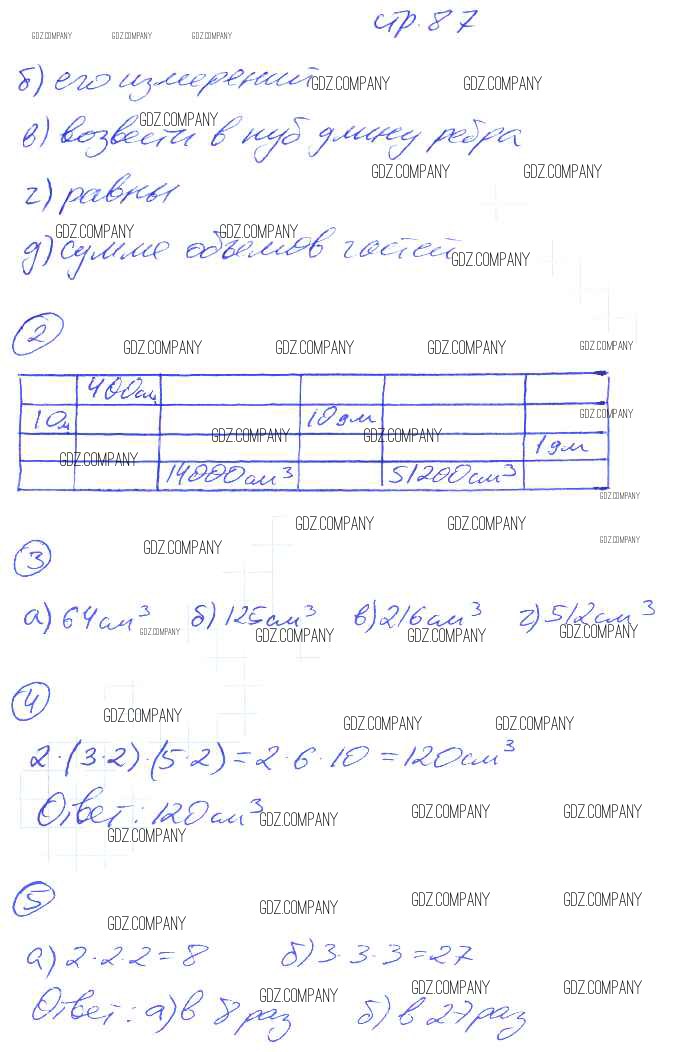 стр. 87
GDZ.COMPANY GDZ.COMPANY GDZ.COMPANY
б) его измерений
GDZ.COMPANY GDZ.COMPANY
GDZ.COMPANY
в) возвести в куб длину ребра
GDZ.COMPANY GDZ.COMPANY
г) равны
GDZ.COMPANY GDZ.COMPANY
д) сумме объемов частей
GDZ.COMPANY
2
GDZ.COMPANY GDZ.COMPANY GDZ.COMPANY GDZ.COMPANY
400см
10м 10дм
GDZ.COMPANY
GDZ.COMPANY GDZ.COMPANY
1дм
GDZ.COMPANY
14000см³ 51200см³
GDZ.COMPANY
GDZ.COMPANY GDZ.COMPANY
GDZ.COMPANY GDZ.COMPANY
3
а) 64см³ б) 125см³ в) 216см³ г) 512см³
GDZ.COMPANY GDZ.COMPANY GDZ.COMPANY GDZ.COMPANY
4
GDZ.COMPANY GDZ.COMPANY GDZ.COMPANY
2·(3·2)·(5·2)=2·6·10=120см³
Ответ: 120см³
GDZ.COMPANY GDZ.COMPANY GDZ.COMPANY
GDZ.COMPANY
5
GDZ.COMPANY GDZ.COMPANY GDZ.COMPANY
GDZ.COMPANY
а) 2·2·2=8 б) 3·3·3=27
GDZ.COMPANY GDZ.COMPANY GDZ.COMPANY
Ответ: а) в 8 раз б) в 27 раз